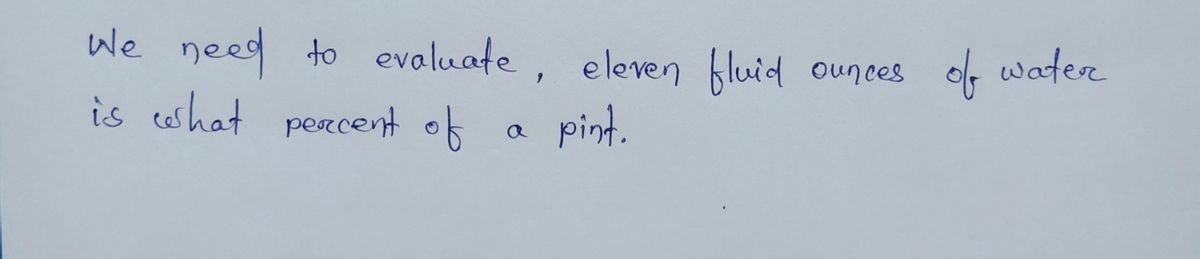 We need to evaluate, eleven fluid ounces of water
is what percent of a pint.